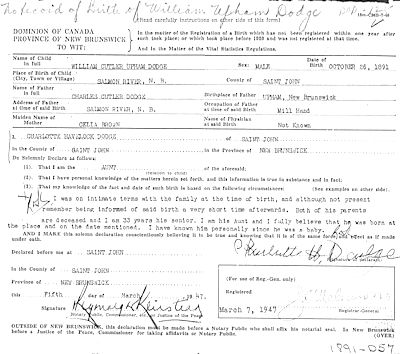 Record of Birth of William Upham Dodge
(Read carefully instructions on other side of this form)
DOMINION OF CANADA
PROVINCE OF NEW BRUNSWICK
TO WIT:
In the matter of the Registration of a Birth which has not been registered within one year after
such took place; or which took place before 1920 and was not registered at that time.
And in the Matter of the Vital Statistics Regulations.
Name of Child
in full
WILLIAM CUTLER UPHAM DODGE
Sex: MALE
Date of
Birth
OCTOBER 26, 1891
Place of Birth of Child
(City, Town or Village)
SALMON RIVER, N. B.
COUNTY of SAINT JOHN
Name of Father
in full
CHARLES CUTLER DODGE
Birthplace of Father
UPHAM, New Brunswick
Address of Father
at time of said Birth
SALMON RIVER, N. B.
Occupation of Father
at time of said Birth
Mill Hand
Maiden Name of
Mother
CELIA BROWN
Name of Physician
at said Birth
Not Known
I CHARLOTTE HAVELOCK DODGE of SAINT JOHN
in the County of SAINT JOHN in the Province of NEW BRUNSWICK
Do Solemnly Declare as follows:
(1) That I am the AUNT of the aforesaid;
(relation to child)
(2) That I have personal knowledge of the matters herein set forth, and this information is true in substance and in fact;
(3) That my knowledge of the fact and date of such birth is based on the following circumstances: (See examples on other side).
I was on intimate terms with the family at the time of birth, and although not present
remember being informed of said birth a very short time afterwards. Both of his parents
are deceased and I am 33 years his senior. I am his Aunt and I fully believe that he was born at
the place and on the date mentioned. I have known him personally since he was a baby.
and I MAKE this solemn declaration conscientiously believing it to be true and knowing that it is of the same force and effect as if made
under oath.
Declared before me at SAINT JOHN
in the County of SAINT JOHN
Province of NEW BRUNSWICK
this Fifth day of March 1947.
Notary Public, Commissioner, etc. or Justice of the Peace.
Declarant
(For use of Reg.-Gen. only)
Registered
March 7, 1947
Registrar-General
OUTSIDE OF NEW BRUNSWICK, this declaration must be made before a Notary Public who shall affix his notarial seal. In New Brunswick
before a Justice of the Peace, Commissioner for taking affidavits or Notary Public.
(OVER)
1891-057